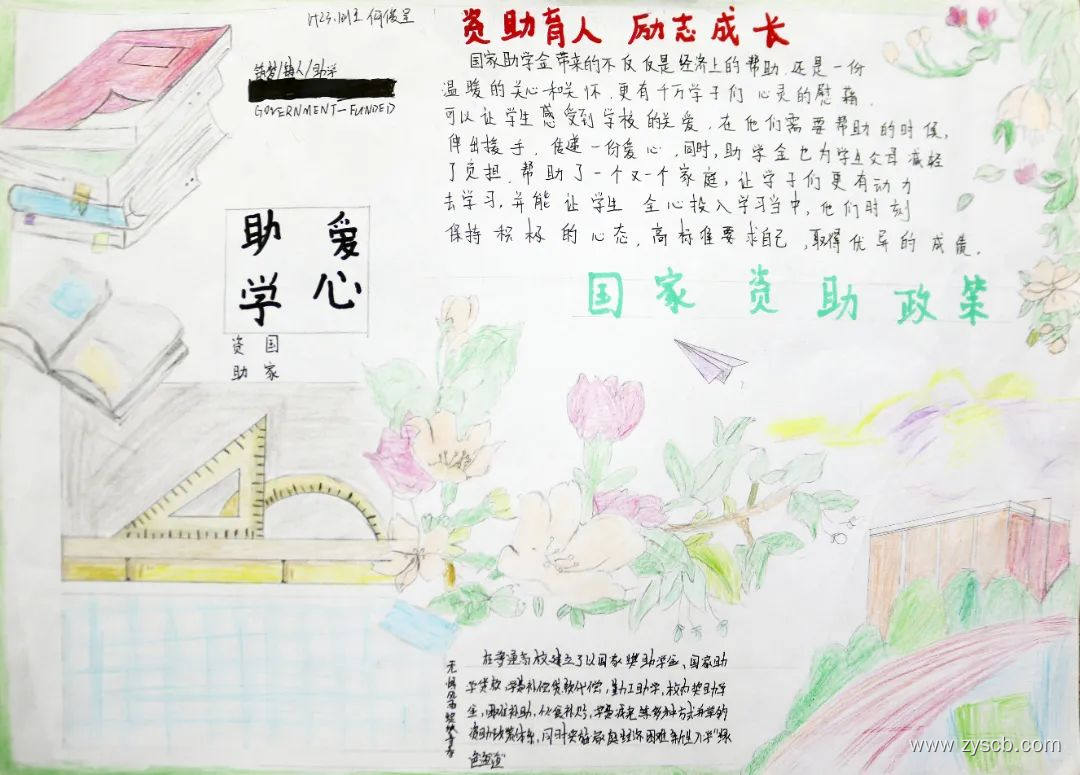 资助育人 励志成长
筑梦/助人/助学
GOVERNMENT-FUNDED
国家助学金带来的不仅仅是经济上的帮助，还是一份
温暖的关心和关怀，更有千万学子们心灵的慰藉，
可以让学生感受到学校的关爱，在他们需要帮助的时候，
伸出援手，传递一份爱心，同时，助学金也为学生父母减轻
了负担，帮助了一个又一个家庭，让学子们更有动力
去学习，并能让学生全心投入学习当中，他们时刻
保持积极的心态，高标准要求自己，取得优异的成绩。
爱心
助学
国家
资助
国家资助政策
在普通高校建立了以国家奖助学金、国家助
学贷款、学费补偿贷款代偿，勤工助学，校内奖助学
金，困难补助，伙食补贴，学费减免等多种方式并举的
资助政策体系，同时实施家庭经济困难新生入学"绿
色通道"
www.zyscb.com